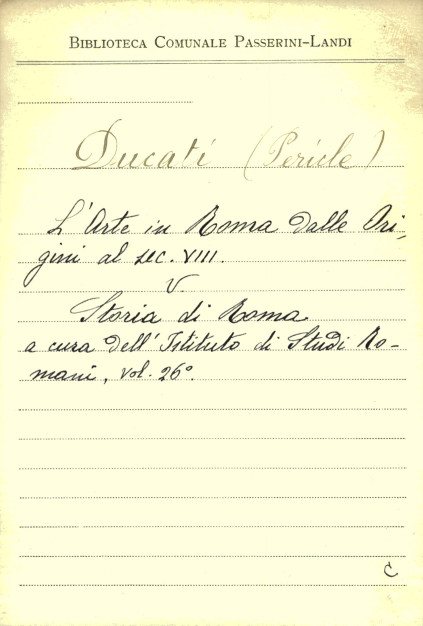 BIBLIOTECA COMUNALE PASSERINI-LANDI
Ducati (Pericle)
L'Arte in Roma dalle Ori-
gini al sec. VIII.
V.
Storia di Roma
a cura dell'Istituto di Studi Ro-
mani, vol. 26°.
C